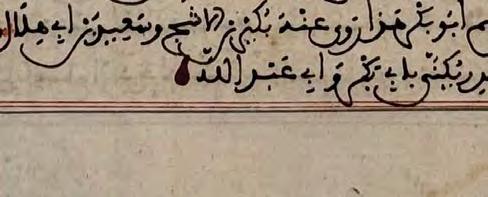 ابو بكر هذا روى عنه بكير بن الاشج وسعيد بن ابي هلال
يكنى بابي بكر و ابي عبد الله